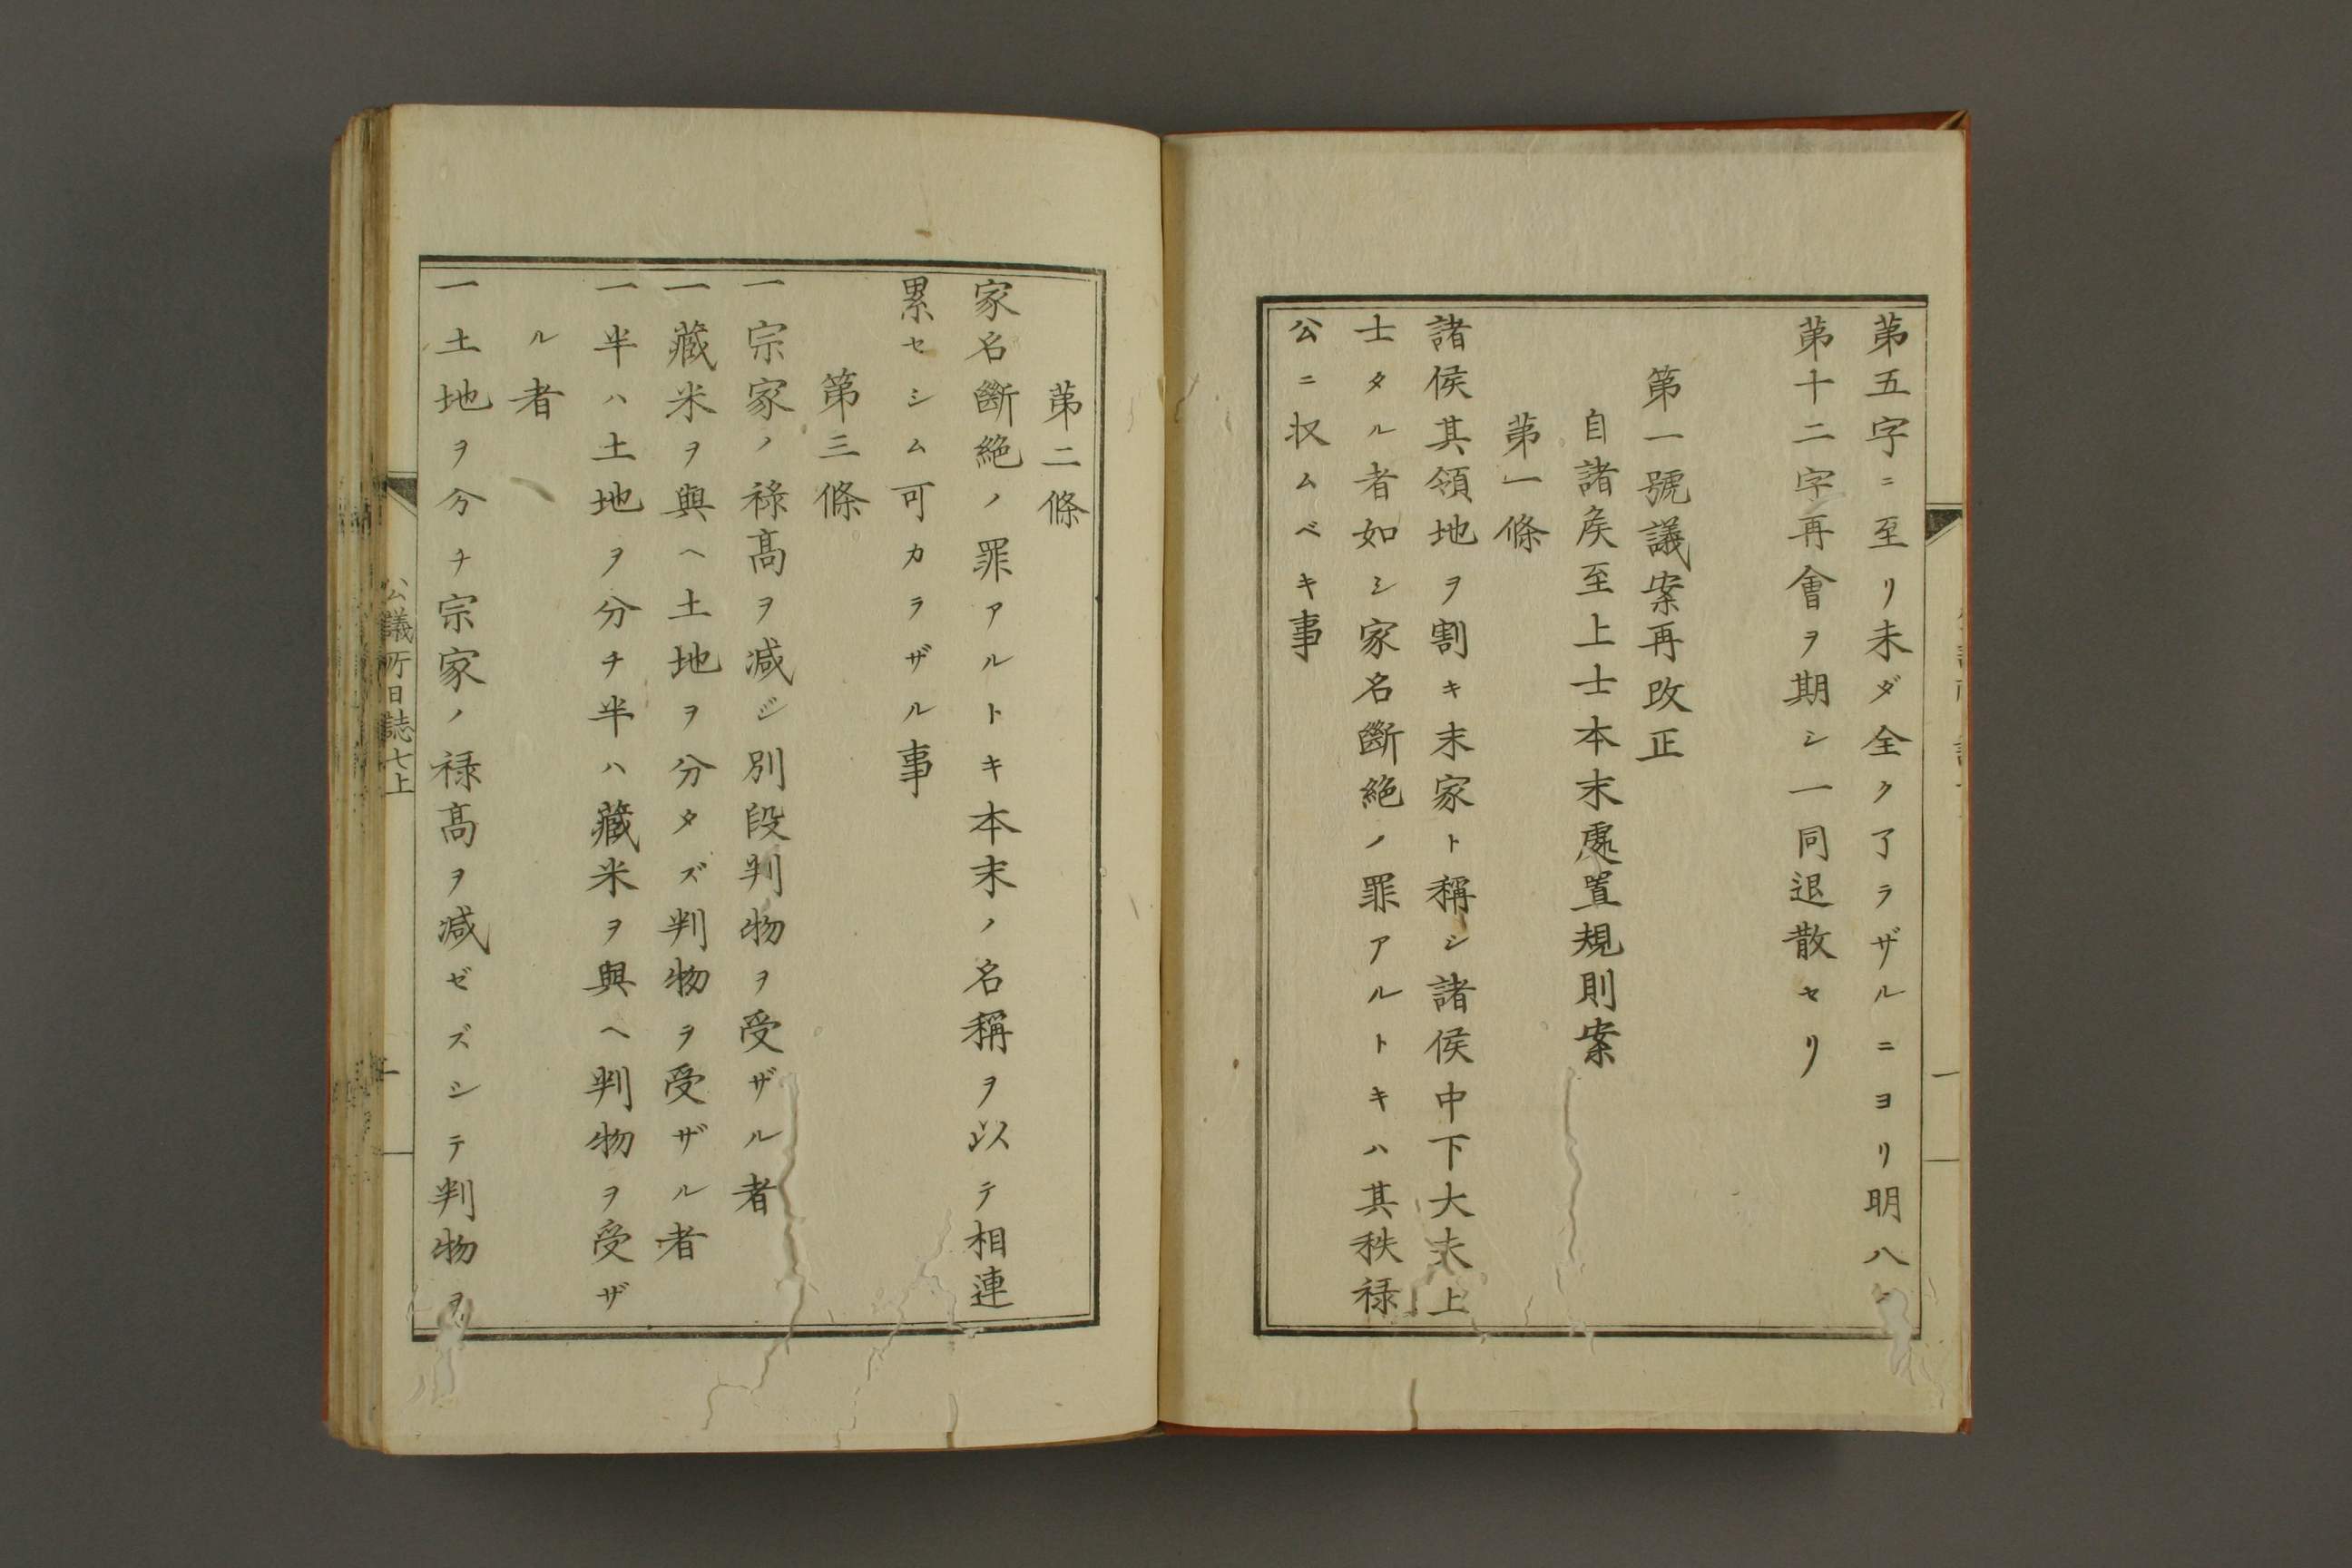 第五字ニ至リ未ダ全ク了ラザルニヨリ明八
第十二字再會ヲ期シ一同退散セリ
第一號議案再改正
自諸侯至上士本末處置規則案
第一條
諸侯其領地ヲ割キ末家ト稱シ諸侯中下大夫上
士タル者如シ家名斷絶ノ罪アルトキハ其秩禄
公ニ収ムベキ事
第二條
家名斷絶ノ罪アルトキ本末ノ名稱ヲ以テ相連
累セシム可カラザル事
第三條
一宗家ノ祿髙ヲ減ジ別段判物ヲ受ザル者
一藏米ヲ與ヘ土地ヲ分タズ判物ヲ受ザル者
一半ハ土地ヲ分チ半ハ藏米ヲ與ヘ判物ヲ受ザ
ル者
一土地ヲ分チ宗家ノ禄髙ヲ減ゼズシテ判物ヲ
公議所日誌七上